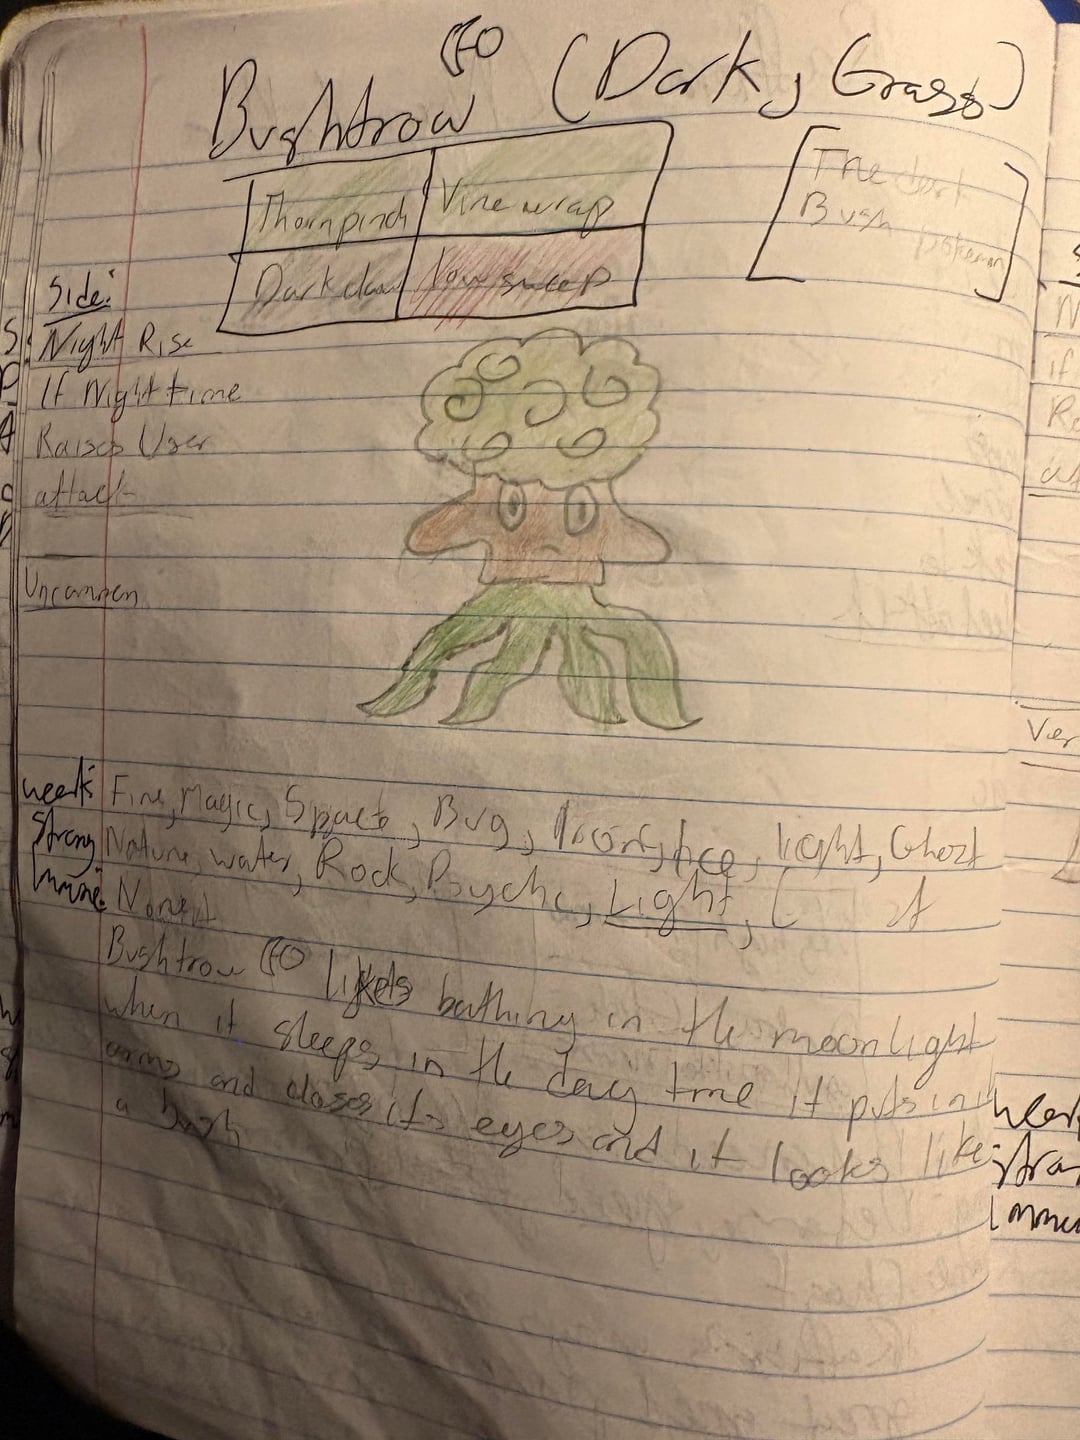 Bushtrow (Dark, Grass)
Thornpinch Vine wrap
Dark claw Low sweep
[The dark
Bush pokemon]
Side:
Night Rise
If Night time
Raises User
attack
Uncommon
weak: Fire, Magic, Space, Bug, Iron, Ice, Light, Ghost
Strong Nature, water, Rock, Psychc, Light,
Immune: None
Bushtrow likes bathing in the moonlight
when it sleeps in the day time it puts in it
arms and closes its eyes and it looks like
a bush